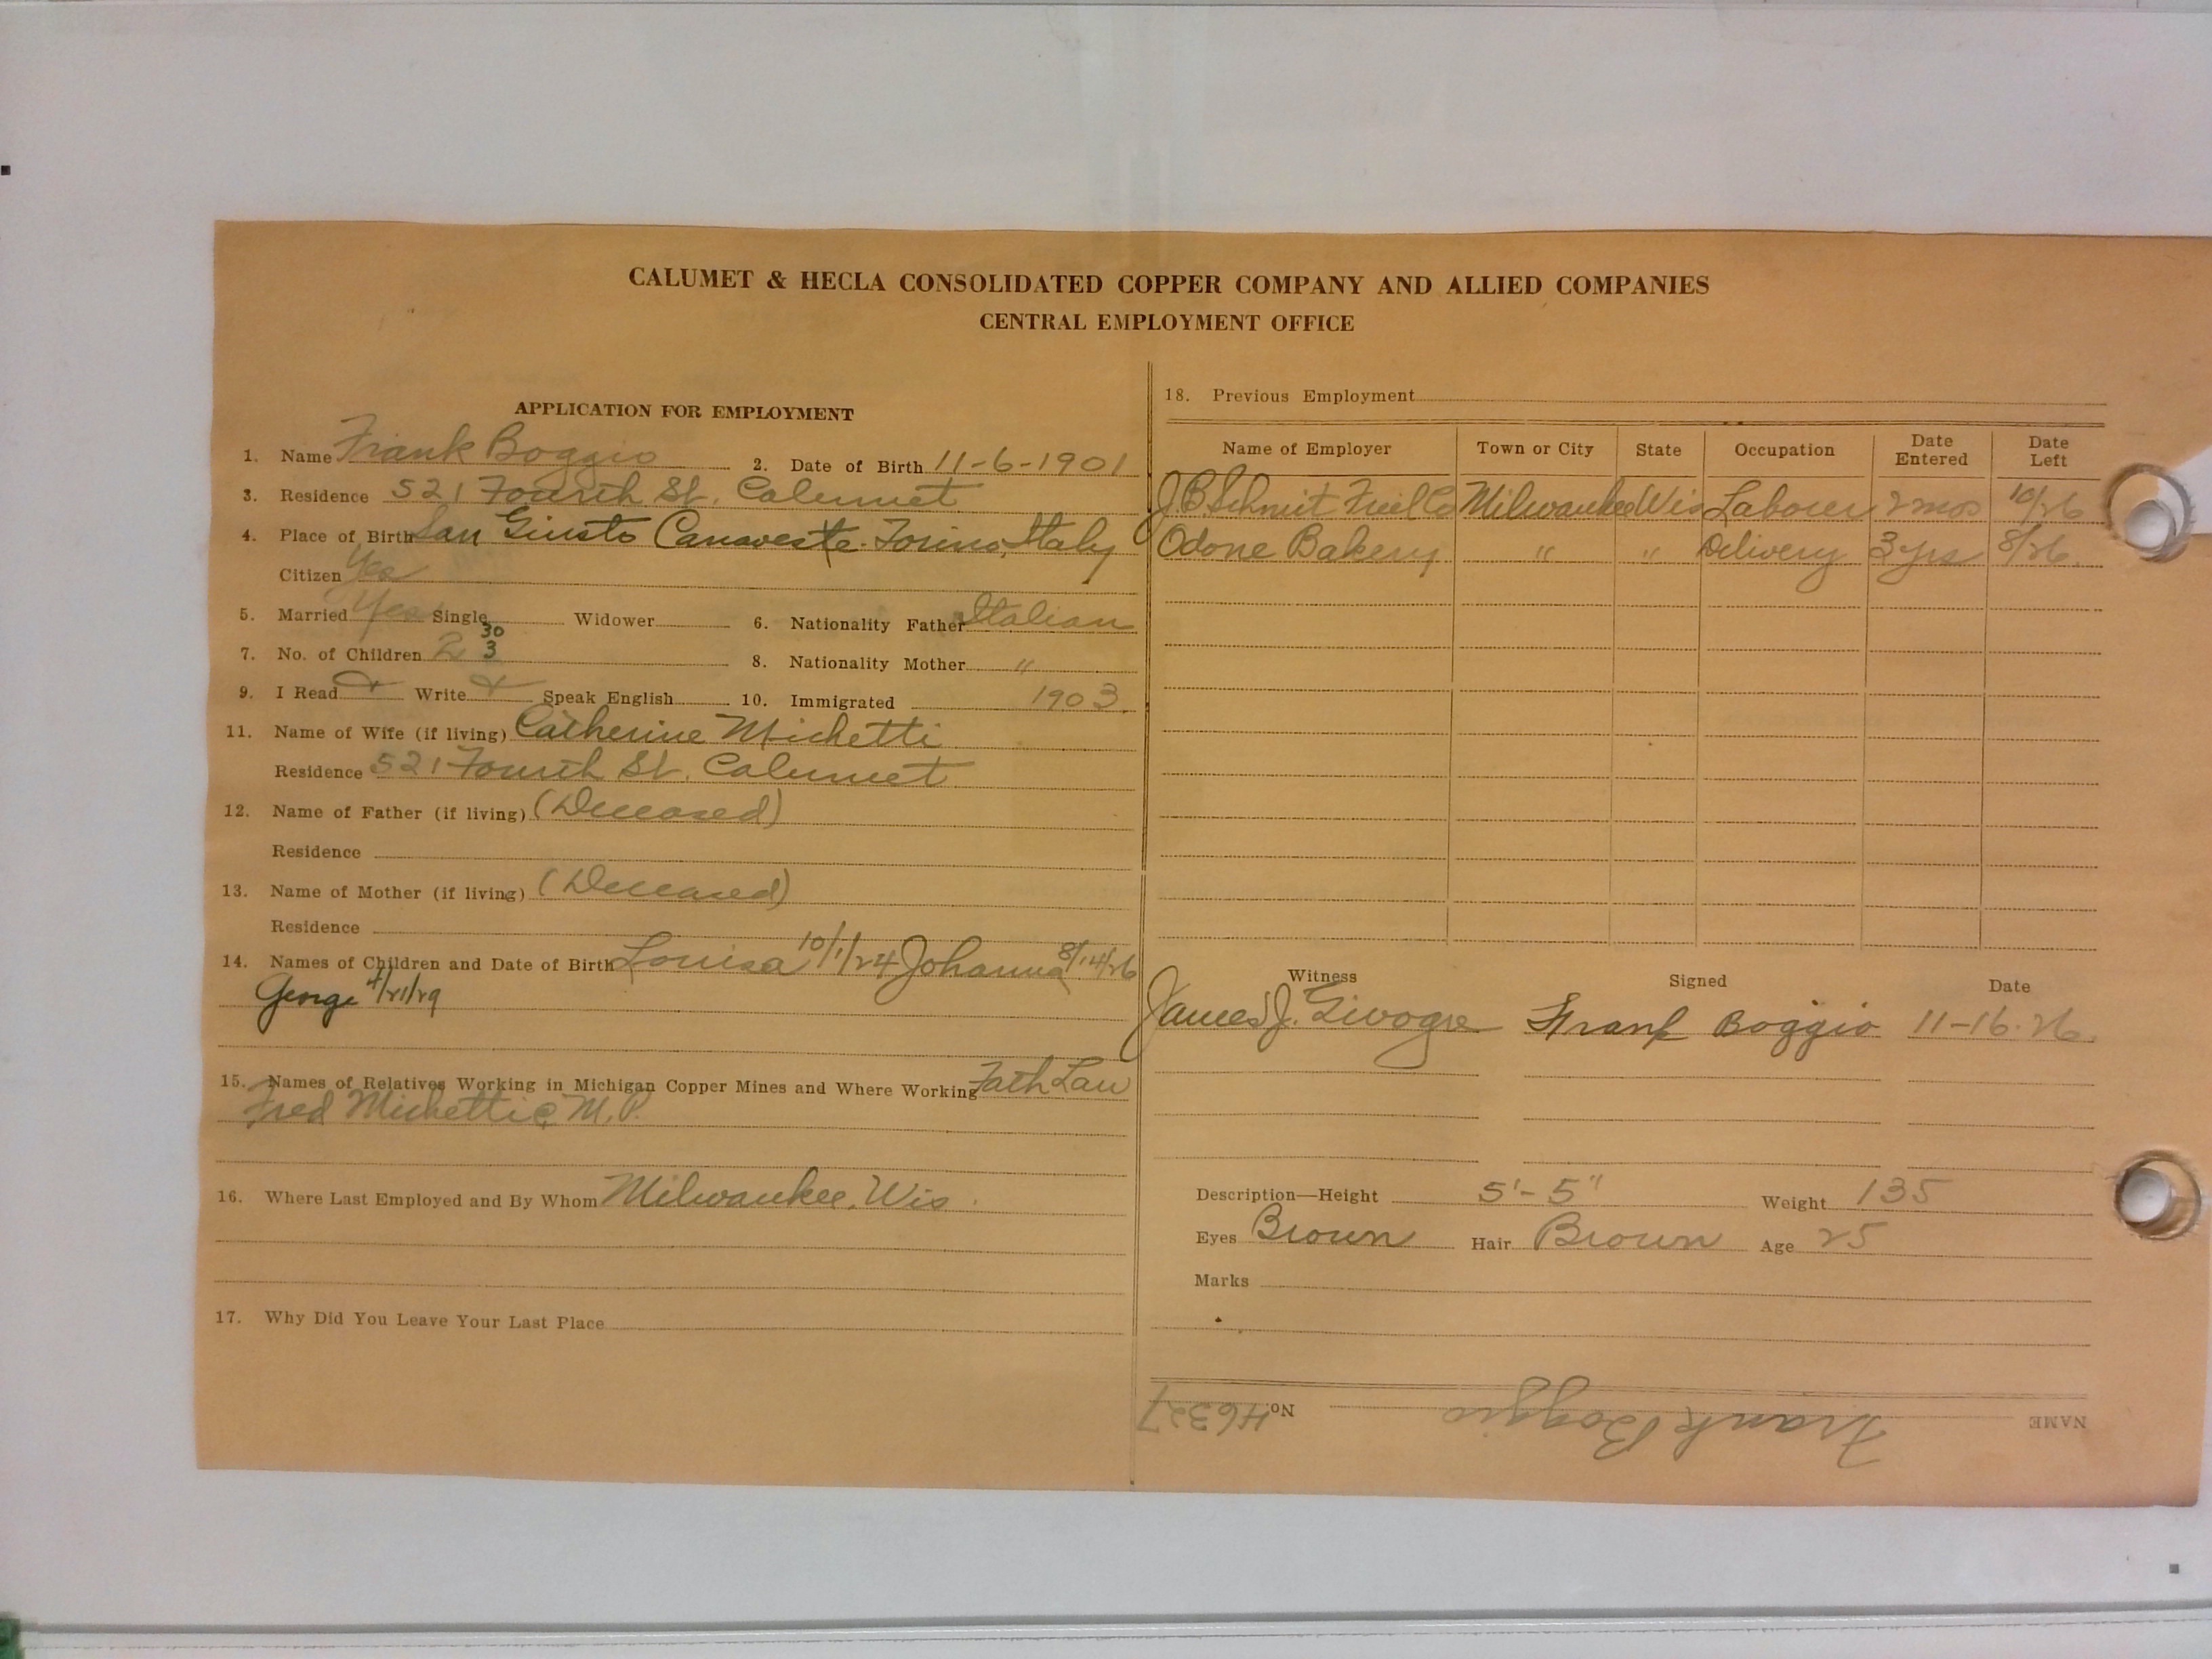 CALUMET & HECLA CONSOLIDATED COPPER COMPANY AND ALLIED COMPANIES
CENTRAL EMPLOYMENT OFFICE
APPLICATION FOR EMPLOYMENT
1. Name Frank Boggio 2. Date of Birth 11-6-1901
3. Residence 521 Fourth St. Calumet
4. Place of Birth San Giusto Canaveste. Torino, Italy
Citizen Yes
5. Married Yes Single Widower 6. Nationality Father Italian
30
7. No. of Children 2 3 8. Nationality Mother "
9. I Read Write Speak English 10. Immigrated 1903.
11. Name of Wife (if living) Catherine Michetti
Residence 521 Fourth St. Calumet
12. Name of Father (if living) (Deceased)
Residence
13. Name of Mother (if living) (Deceased)
Residence
14. Names of Children and Date of Birth Louisa 10/1/24 Johanna 8/14/26
George 4/21/29
15. Names of Relatives Working in Michigan Copper Mines and Where Working Fath Law
Fred Michetti M.P.
16. Where Last Employed and By Whom Milwaukee, Wis.
17. Why Did You Leave Your Last Place
18. Previous Employment
Name of Employer Town or City State Occupation Date Entered Date Left
J.B Schmit Fuel Co Milwaukee Wis Laborer 2 mos 10/26
Odone Bakery " " Delivery 3 yrs 8/26.
Witness Signed Date
James J. Givogre Frank Boggio 11-16-26.
Description—Height 5'-5" Weight 135
Eyes Brown Hair Brown Age 25
Marks
NAME Frank Boggio No. 46327